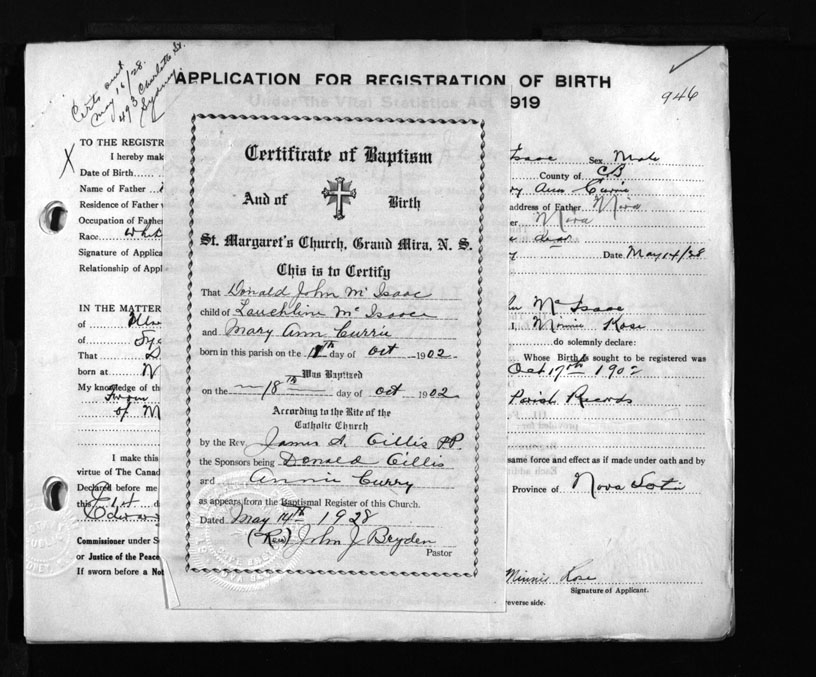 Certs sent
May 16/28.
493 Charlotte St.
Sydney
APPLICATION FOR REGISTRATION OF BIRTH
Under the Vital Statistics Act
1919
946
TO THE REGISTR
I hereby mak
Isaac Sex Male
Date of Birth
County of CB
Name of Father
Ann Currie
Residence of Father
address of Father Mira
Occupation of Father
Mira
Race White
Signature of Applica
Date May 14/28
Relationship of Appl
IN THE MATTER
Mc Isaac
of
I, Minnie Rose
of Syd
do solemnly declare:
That D
Whose Birth is sought to be registered was
born at
Oct 17th 1902
My knowledge of the
Parish Records
of M
I make this
same force and effect as if made under oath and by
virtue of The Canad
Declared before me
Province of Nova Scotia
this 21st d
Edward
Commissioner under S
or Justice of the Peace
If sworn before a Not
Minnie Rose
Signature of Applicant.
reverse side.
Certificate of Baptism
And of Birth
St. Margaret's Church, Grand Mira, N. S.
This is to Certify
That Donald John Mc Isaac
child of Lauchline Mc Isaac
and Mary Ann Currie
born in this parish on the 17th day of Oct 1902
Was Baptized
on the 18th day of Oct 1902
According to the Rite of the
Catholic Church
by the Rev. James A. Gillis P.P.
the Sponsors being Donald Gillis
and Annie Curry
as appears from the Baptismal Register of this Church.
Dated May 14th 1928
(Rev) John J Bryden
Pastor